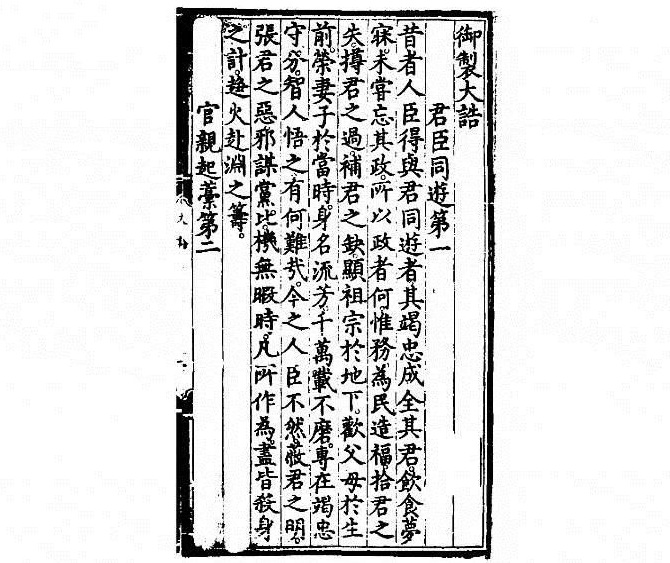 御製大誥
君臣同遊第一
昔者人臣得與君同遊者其竭忠成全其君飲食夢
寐未嘗忘其政所以政者何惟務為民造福拾君之
失撙君之過補君之缺顯祖宗於地下歡父母於生
前榮妻子於當時身名流芳千萬載不磨專在竭忠
守分智人悟之有何難哉今之人臣不然蔽君之明
張君之惡邪謀黨比機無暇時凡所作為盡皆殺身
之計趨火赴淵之籌
官親起藁第二
大誥